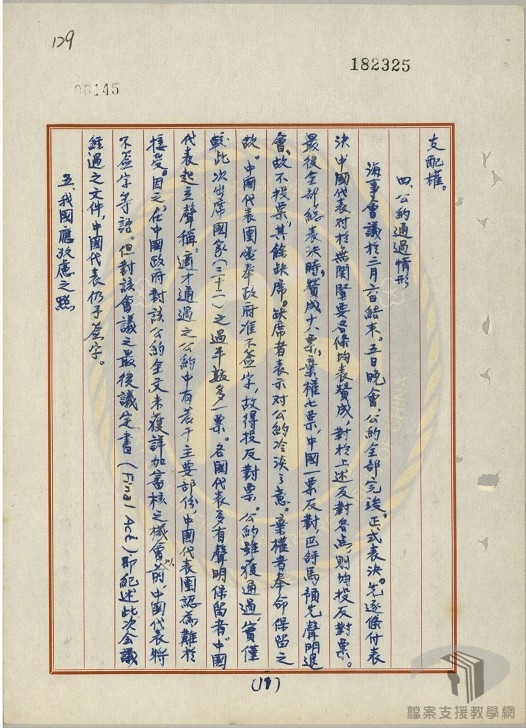 129
182325
00145
支配權。
四、公約通過情形
海事會議於三月六日結束。五日晚會、公約全部完竣。正式表決。先逐條付表
決中國代表對於無關緊要各條均表贊成，對於上述反對各点，則均投反對票。
最後全部總表決時，贊成十八票，棄權七票，中國一票反對，巴拿馬預先聲明退
會，故不投票，其餘缺席。缺席者表示对公約冷淡之意。棄權者奉命保留之
故。中國代表團奉政府准不簽字，故得投反對票。公約雖獲通過，實僅
較此次出席國家(三十一)之過半數多一票。各國代表多有聲明保留者。中國
代表起立聲稱，適才通過之公約中有若干主要部份，中國代表團認為難於
接受。因之，在中國政府對該公約全文未獲詳加審核之機會以前，中國代表將
不簽字等語。但對該會議之最後議定書(Final Act)即紀述此次會議
經過之文件，中國代表仍予簽字。
五、我國應攷慮之點
檔案支援教學網